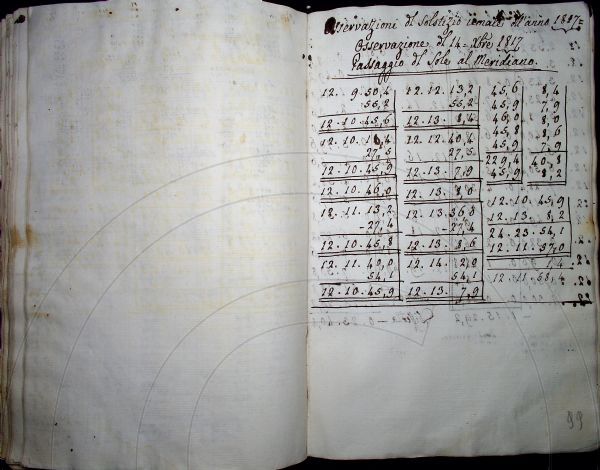 Osservazioni di Solstizio iemale dell'anno 1817=
Osservazione del 14 Xbre 1817
Passaggio del Sole al Meridiano.
12. 9. 50,4 12. 12. 13,2 45,6 8,4
55,2 55,2 45,9 7,9
12. 10. 45,6 12. 13. 8,4 46,0 8,0
12. 10. 18,4 12. 12. 40,4 45,8 8,6
27,5 27,5 45,9 7,9
12. 10. 45,9 12. 13. 7,9 229,4 40,8
45,9 8,2
12. 10. 46,0 12. 13. 8,0
12. 11. 13,2 12. 13. 36,0 12. 10. 45,9
-27,4 -27,4 12. 13. 8,2
12. 10. 45,8 12. 13. 8,6 24. 23. 54,1
12. 11. 57,0
12. 11. 40,0 12. 14. 2,0 1,4
54,1 54,1 12. 11. 58,4
12. 10. 45,9 12. 13. 7,9
99